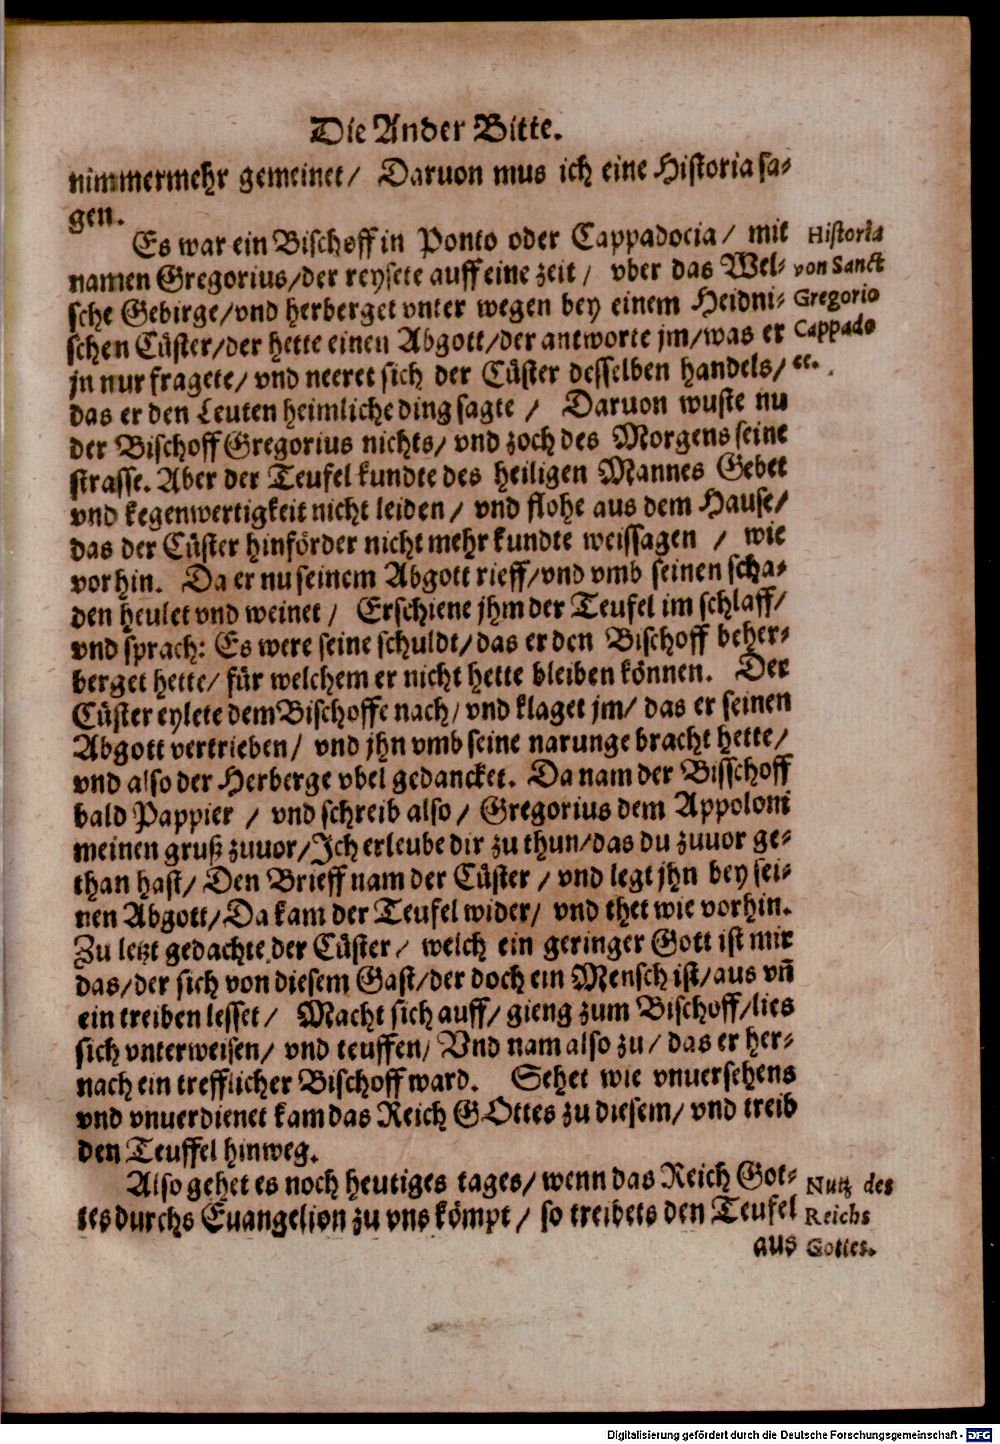 Die Ander Bitte.
nimmermehr gemeinet/ Daruon mus ich eine Historia sa-
gen.
Es war ein Bischoff in Ponto oder Cappadocia/ mit
namen Gregorius/der reysete auff eine zeit/ vber das Wel-
sche Gebirge/vnd herberget vnter wegen bey einem Heidni-
schen Cüster/der hette einen Abgott/der antworte jm/was er
jn nur fragete/ vnd neeret sich der Cüster desselben handels/
das er den Leuten heimliche ding sagte / Daruon wuste nu
der Bischoff Gregorius nichts/ vnd zoch des Morgens seine
strasse. Aber der Teufel kundte des heiligen Mannes Gebet
vnd kegenwertigkeit nicht leiden/ vnd flohe aus dem Hause/
das der Cüster hinförder nicht mehr kundte weissagen / wie
vorhin. Da er nu seinem Abgott rieff/vnd vmb seinen scha-
den heulet vnd weinet/ Erschiene jhm der Teufel im schlaff/
vnd sprach: Es were seine schuldt/das er den Bischoff beher-
berget hette/ für welchem er nicht hette bleiben können. Der
Cüster eylete dem Bischoffe nach/ vnd klaget jm/ das er seinen
Abgott vertrieben/ vnd jhn vmb seine narunge bracht hette/
vnd also der Herberge vbel gedancket. Da nam der Bisschoff
bald Pappier / vnd schreib also/ Gregorius dem Appoloni
meinen gruß zuuor/Ich erleube dir zu thun/das du zuuor ge-
than hast/ Den Brieff nam der Cüster / vnd legt jhn bey sei-
nen Abgott/Da kam der Teufel wider/ vnd thet wie vorhin.
Zu letzt gedachte der Cüster/ welch ein geringer Gott ist mir
das/der sich von diesem Gast/der doch ein Mensch ist/aus vñ
ein treiben lesset/ Macht sich auff/ gieng zum Bischoff/lies
sich vnterweisen/ vnd teuffen/ Vnd nam also zu/ das er her-
nach ein trefflicher Bischoff ward. Sehet wie vnuersehens
vnd vnuerdienet kam das Reich GOttes zu diesem/ vnd treib
den Teuffel hinweg.
Also gehet es noch heutiges tages/ wenn das Reich Got-
tes durchs Euangelion zu vns kömpt/ so treibets den Teufel
aus
Historia
von Sanct
Gregorio
Cappado
ce.
Nutz des
Reichs
Gottes.
Digitalisierung gefördert durch die Deutsche Forschungsgemeinschaft - DFG